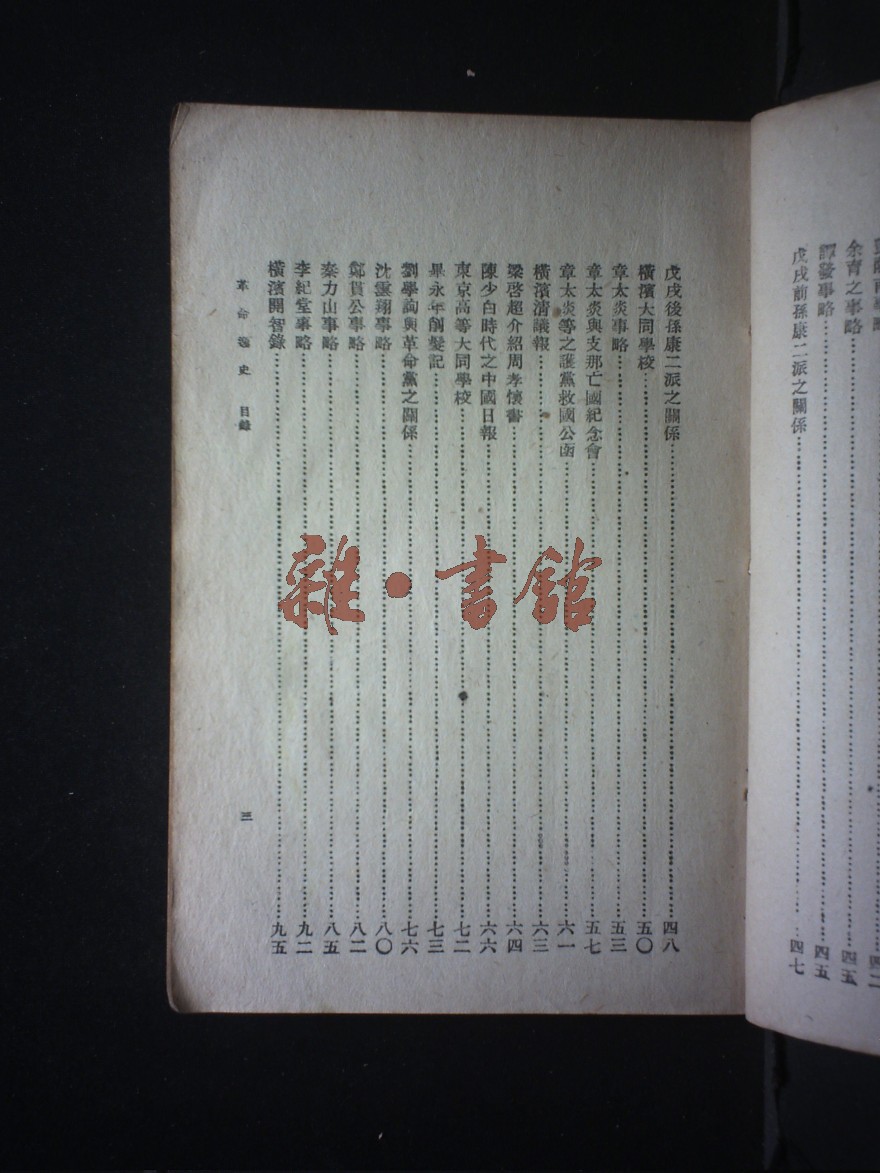 余育之事略……四五
譚發事略……四五
戊戌前孫康二派之關係……四七
戊戌後孫康二派之關係……四八
橫濱大同學校……五〇
章太炎事略……五三
章太炎與支那亡國紀念會……五七
章太炎等之護黨救國公函……六一
橫濱清議報……六三
梁啓超介紹周孝懷書……六四
陳少白時代之中國日報……六六
東京高等大同學校……七二
畢永年削髮記……七三
劉學詢與革命黨之關係……七六
沈雲翔事略……八〇
鄭貫公事略……八二
秦力山事略……八五
李紀堂事略……九二
橫濱開智錄……九五
革命逸史 目錄
三
雜·書館